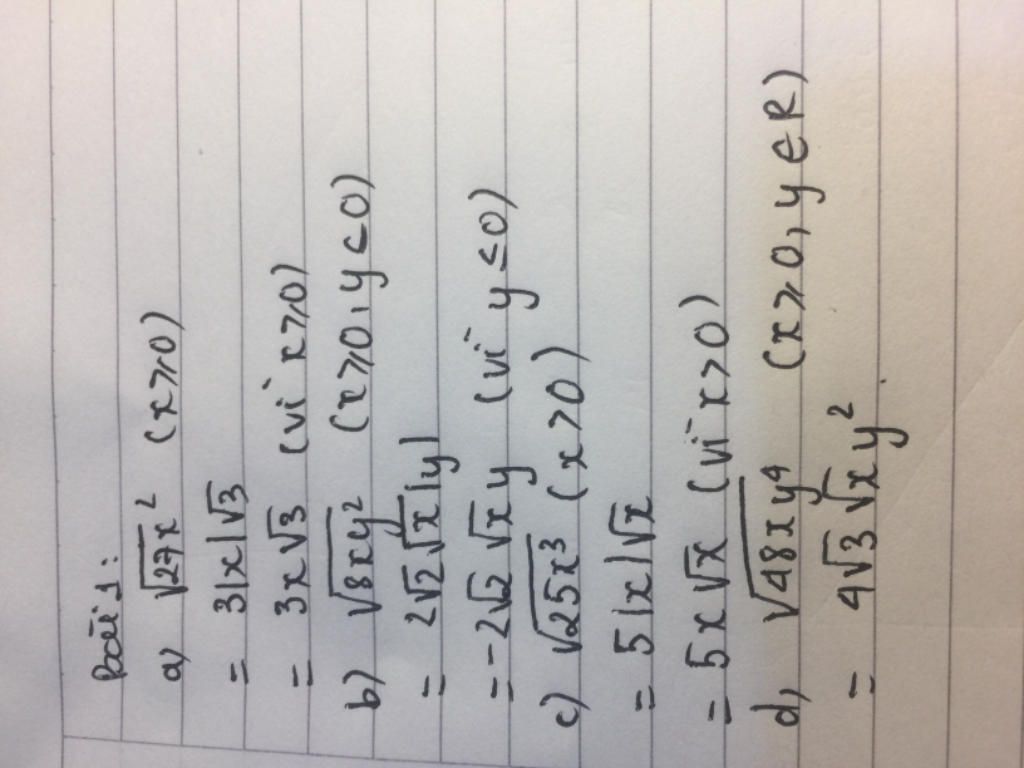 Bài 1:
a) √27x² (x ⩾ 0)
= 3|x|√3
= 3x√3 (vì x ⩾ 0)
b) √8xy² (x ⩾ 0, y ≤ 0)
= 2√2√x|y|
= -2√2√xy (vì y ≤ 0)
c) √25x³ (x > 0)
= 5|x|√x
= 5x√x (vì x > 0)
d) √48xy⁴ (x ⩾ 0, y ∈ R)
= 4√3√xy².